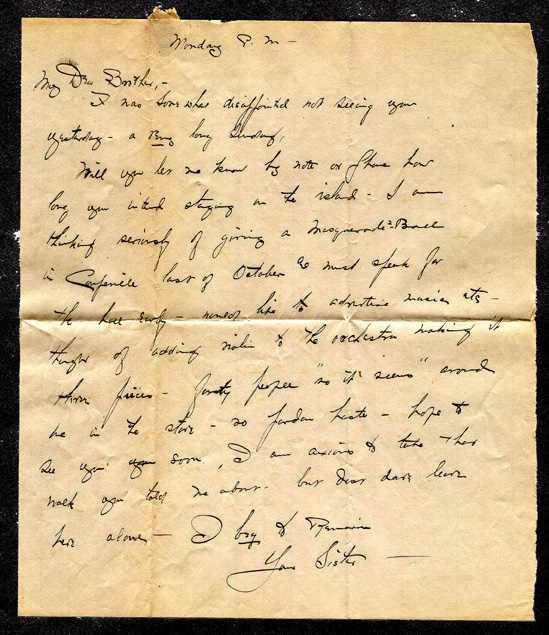 Monday P. M -
My Dear Brother, -
I was somewhat disappointed not seeing you
yesterday - a very long Sunday,
Will you let me know by note or Phone how
long you intend staying on the island - I am
thinking seriously of giving a Masquerade-Ball
in last of October & must speak for
the hall early - would like to advertise music etc -
thought of adding violin to the orchestra making it
three pieces - people "so it seems" around
me in the store - so pardon haste - hope to
see you soon, I am anxious to take that
walk you told me about - but dare leave
here alone - I beg to Remain
Your Sister -